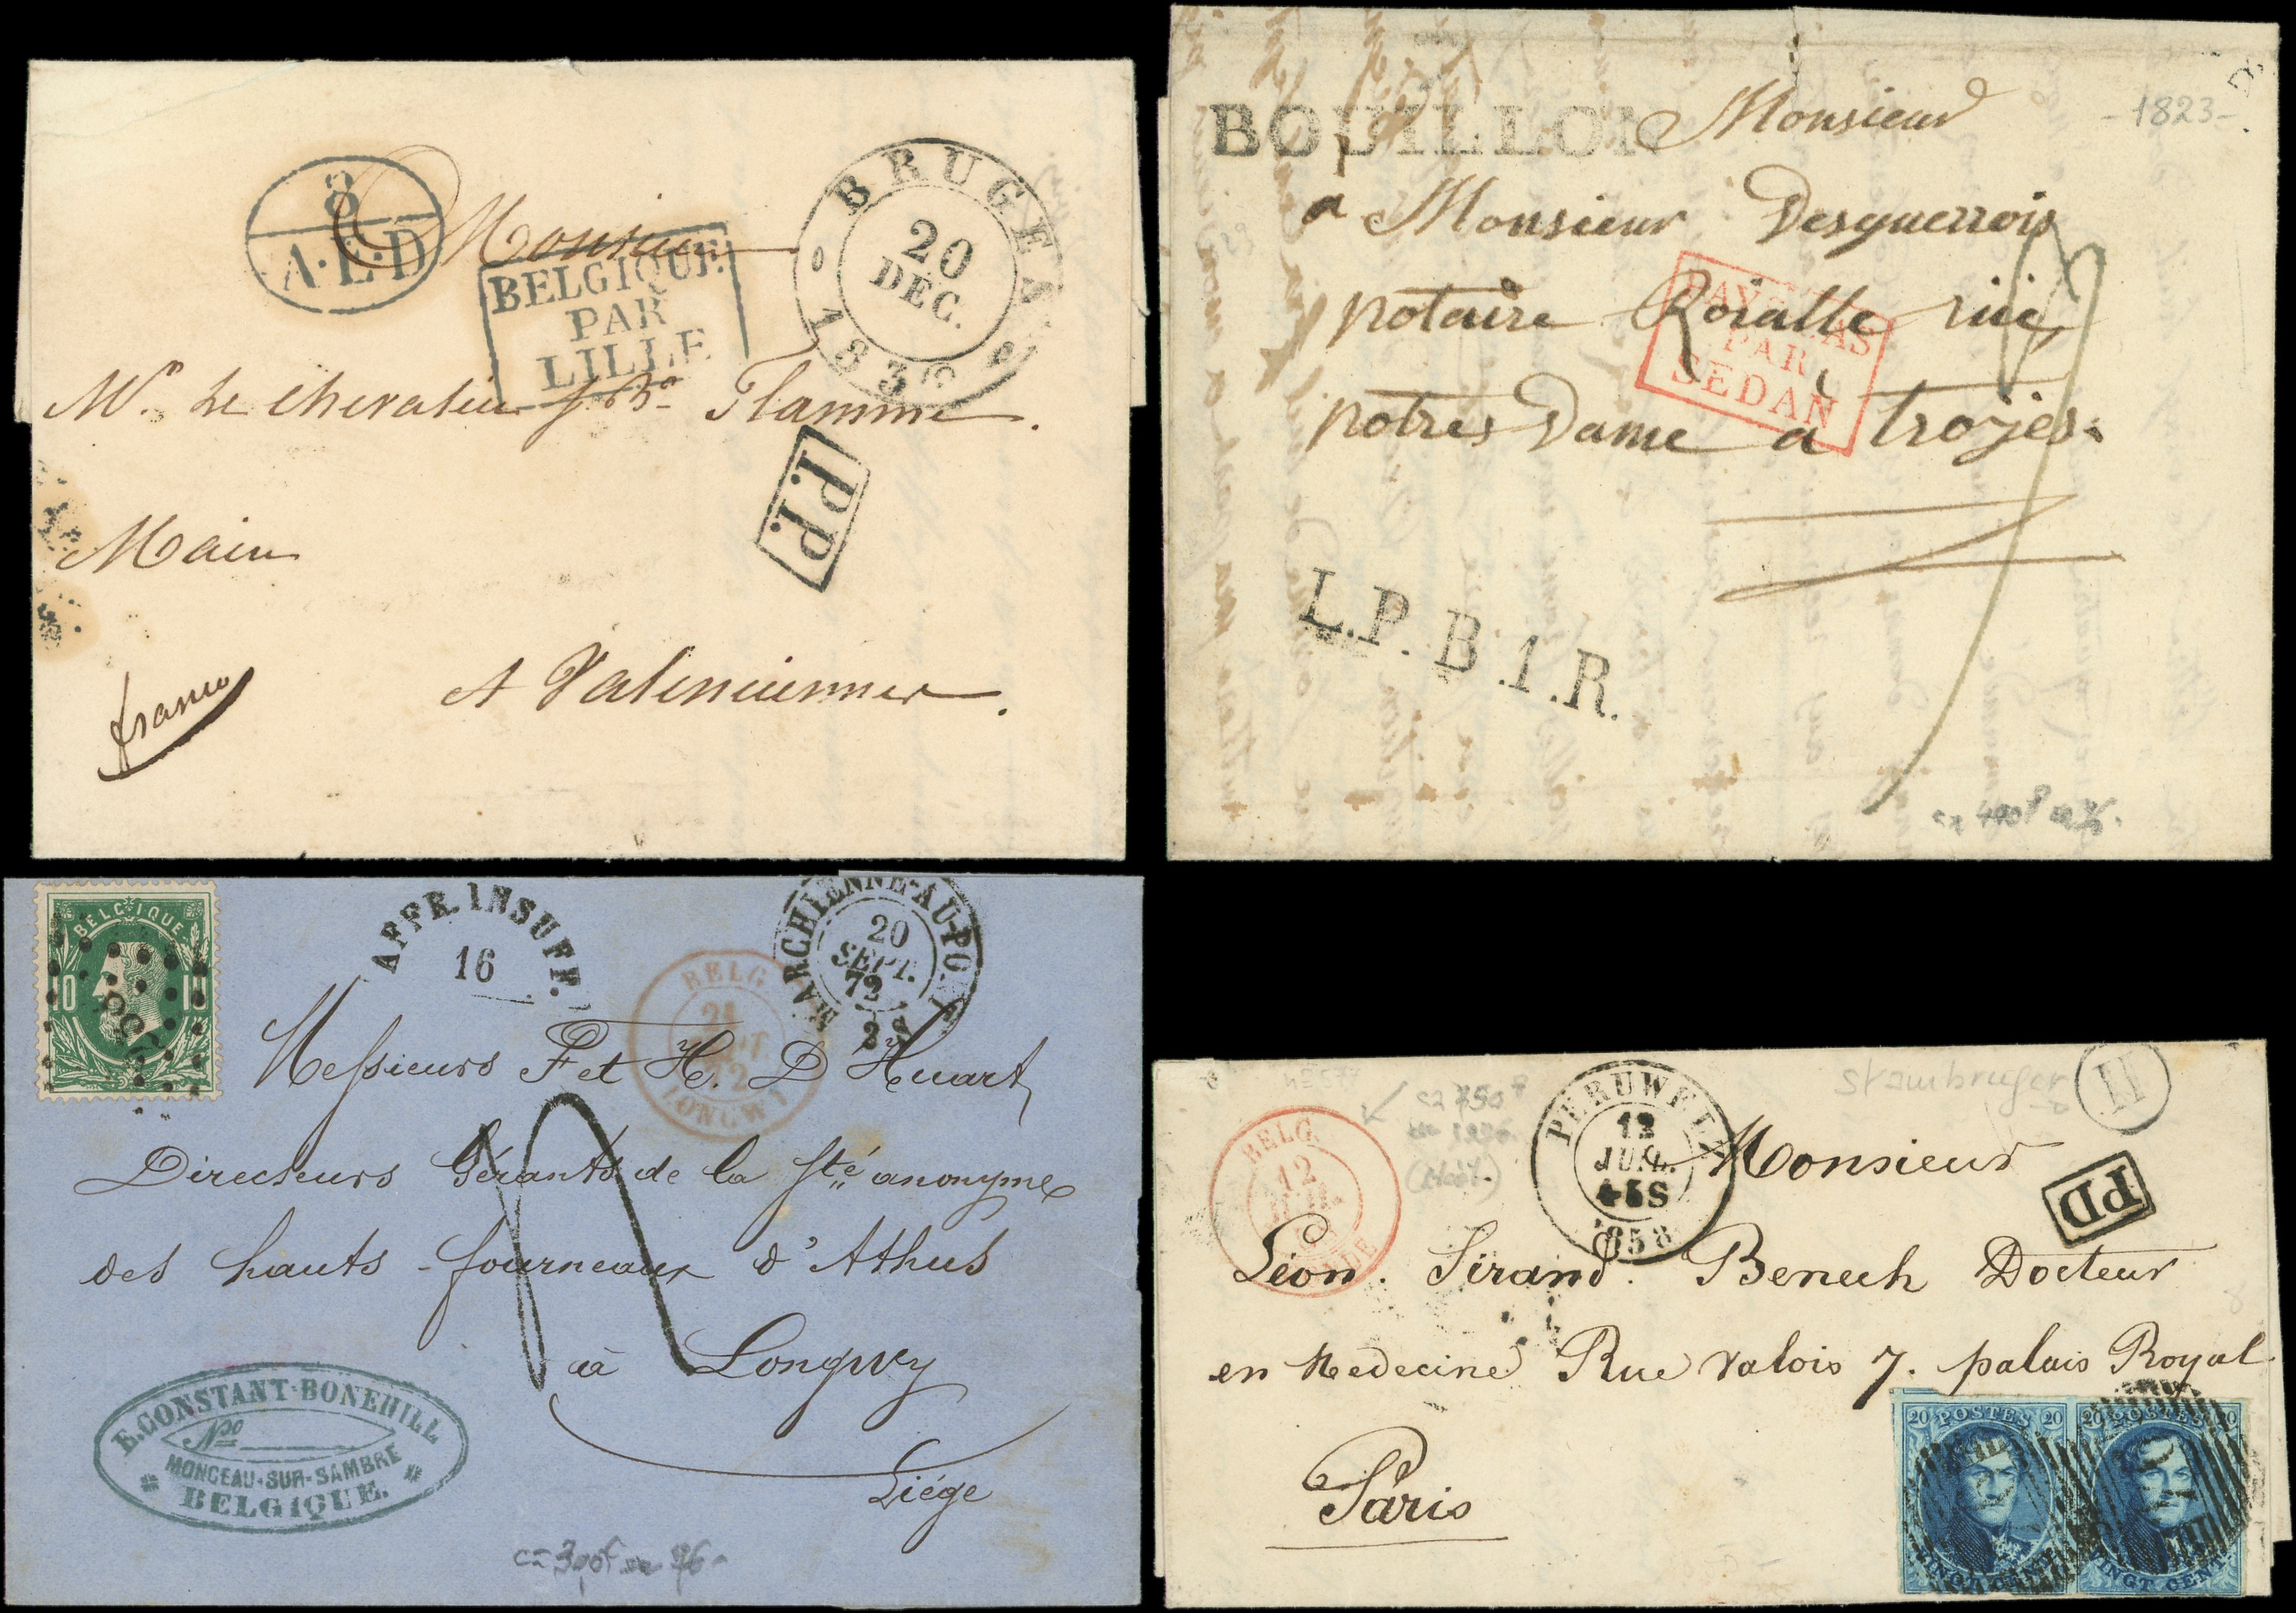 8
A.E.D
Monsieur
BELGIQUE.
PAR
LILLE
BRUGES
20
DEC.
183
Mr. Le Chevalier Flamme.
P.P.
Maire
franco
A Valenciennes.
BOUILLON
Monsieur
-1823-
a Monsieur Desguerrois
notaire Roialle rue
PAYS BAS
PAR
SEDAN
notres Dame a troyes.
L.P.B.1.R.
BELGIQUE
10
AFFR. INSUFF.
16
BELG.
21
LONGWY
MARCHIENNE-AU-PONT
20
SEPT.
72
Messieurs F et H. D'Huart
Directeurs Gérants de la Sté anonyme
des hauts-fourneaux d'Athus
à Longwy
Liége
E. CONSTANT-BONEHILL
No
MONCEAU-SUR-SAMBRE
BELGIQUE.
Stambruges
H
BELG.
12
PERUWELZ
12
JUIL.
4-5S
1858
Monsieur
PD
Léon. Sirand. Benech Docteur
en Medecine Rue Valois 7. palais Royal
Paris
20 POSTES 20
VINGT CENT
20 POSTES 20
VINGT CENT